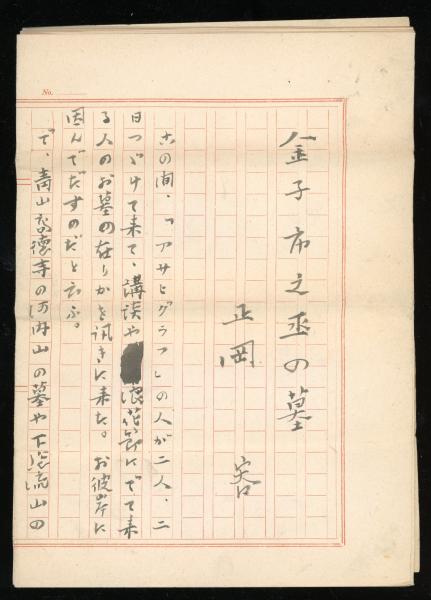 金子市之丞の墓
正岡 容
この間、「アサヒグラフ」の人が二人、二
日つゞけて来て、講談や浪花節にでて来
る人のお墓の在りかを訊きに来た。お彼岸に
因んでだすのだと云ふ。
で、青山高徳寺の河内山の墓や下総流山の
No.